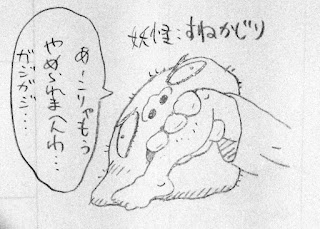 妖怪:すねかじり
あーこりゃもう
やめられまへんわ…
ガジガジ……